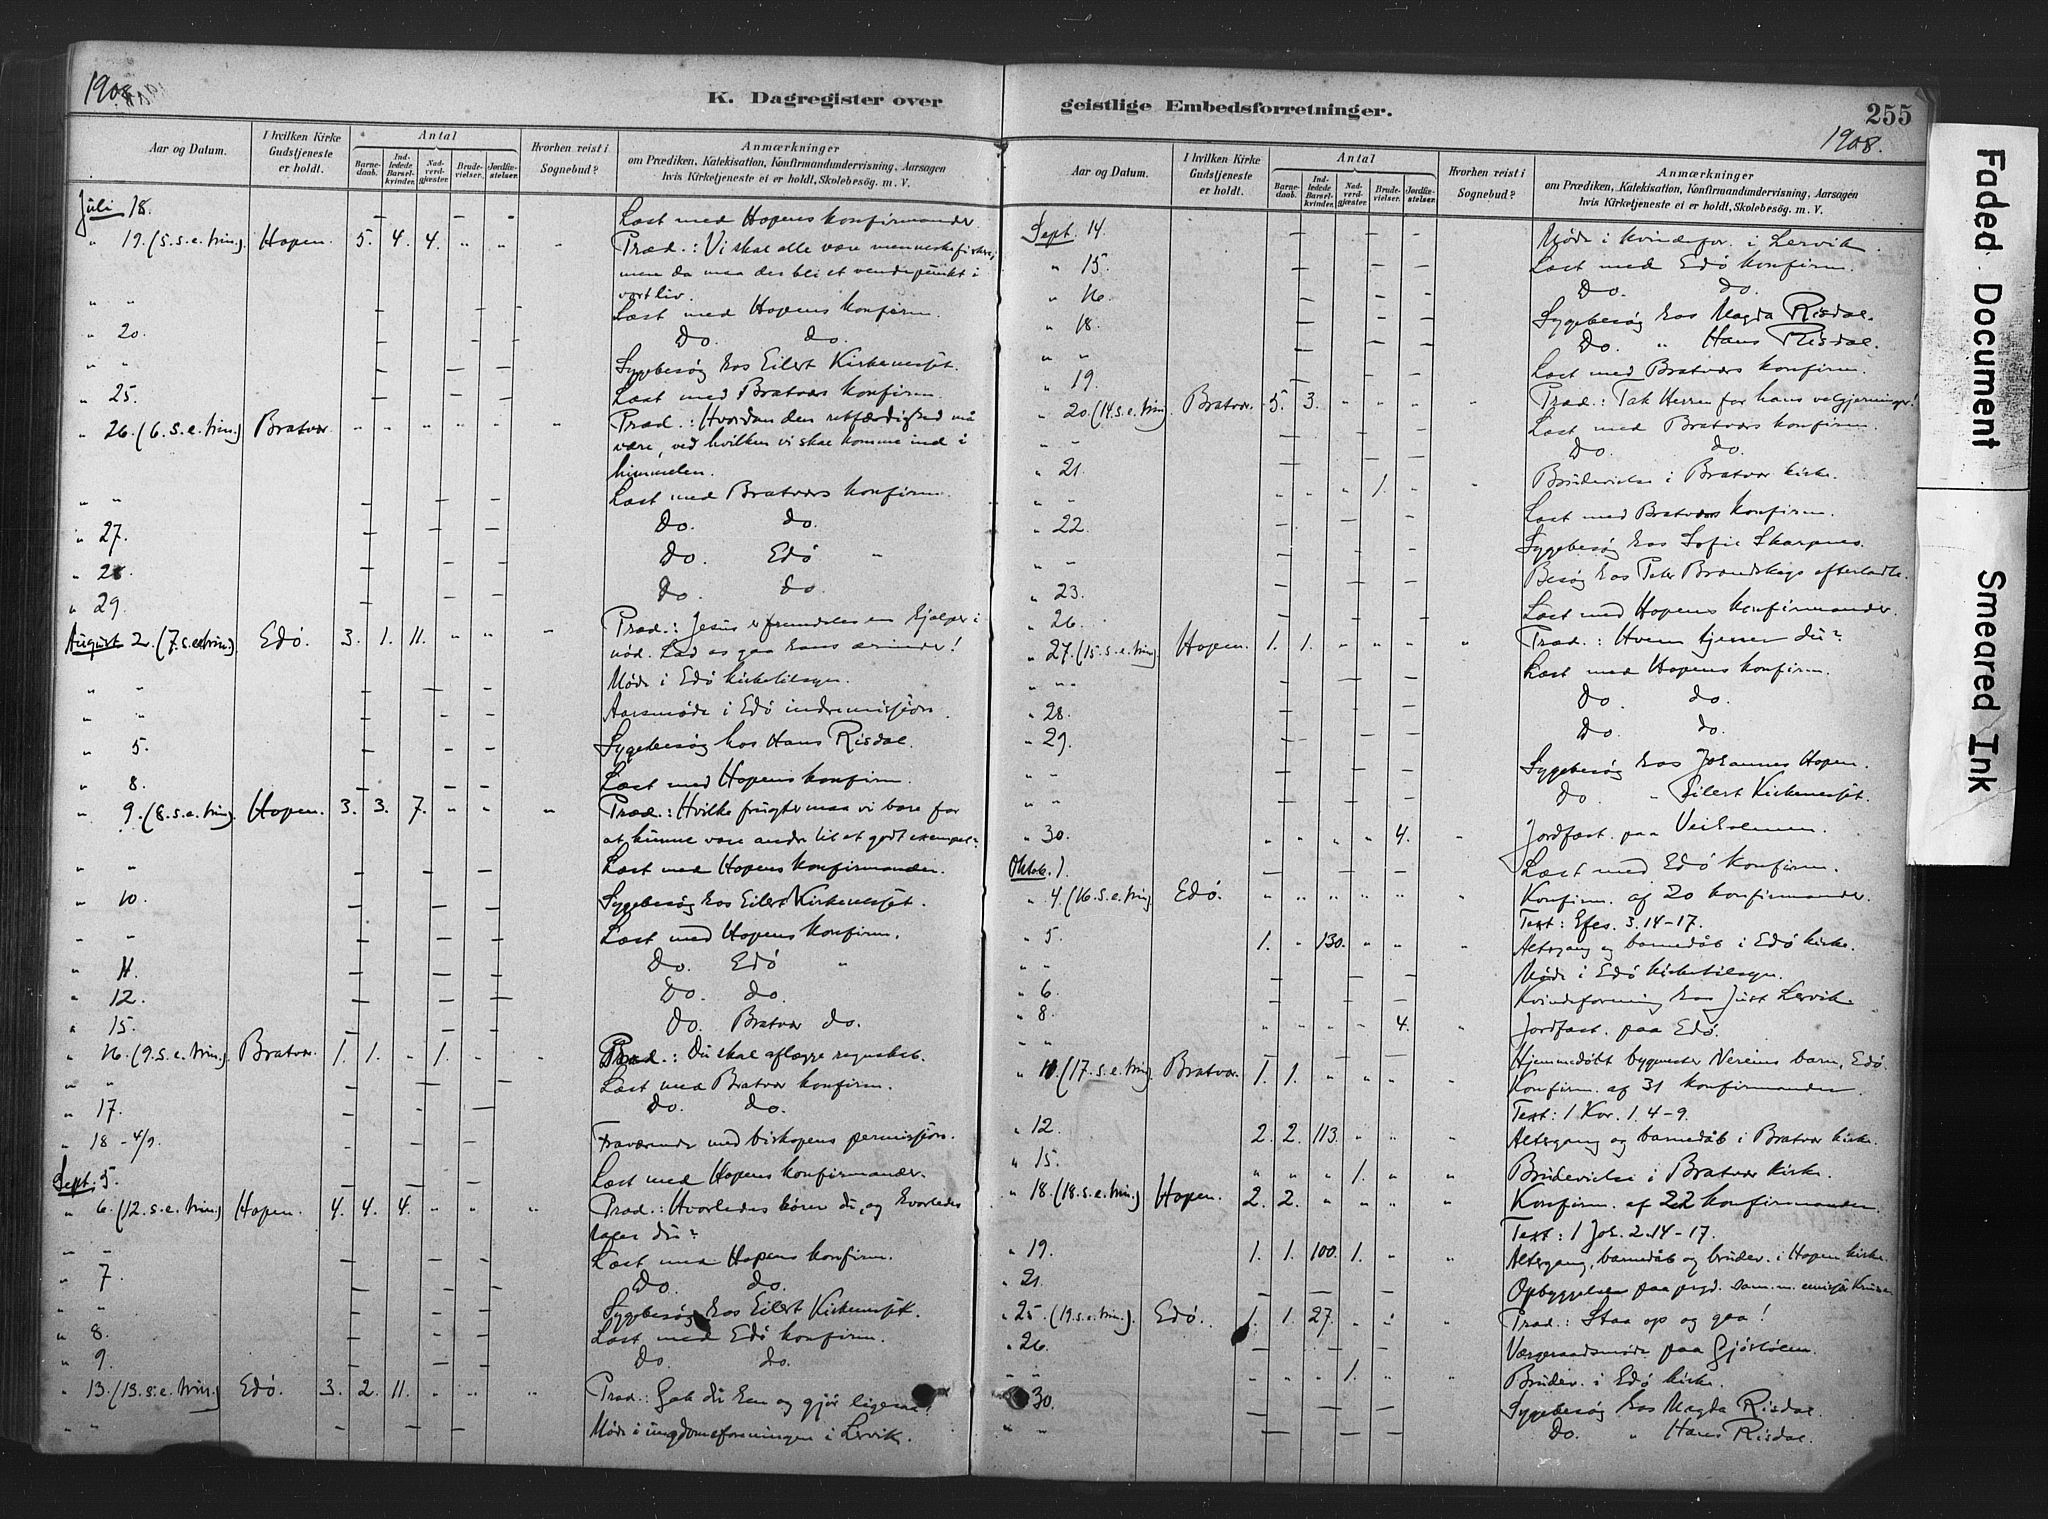 1908
K. Dagregister over
Aar og Datum.
I hvilken Kirke Gudstjeneste er holdt.
Antal
Barnedaab.
Indledede Barselkvinder.
Nadverdgjæster.
Brudevielser.
Jordfæstelser.
Hvorhen reist i Sognebud?
Anmærkninger
om Prædiken, Katekisation, Konfirmandundervisning, Aarsagen
hvis Kirketjeneste ei er holdt, Skolebesøg. m. V.
Juli 18. — — — Læst med Hopens konfirmander
" 19. (5. s. e. trin.) Hopen. 5. 4. 4. " " " Præd.: Vi skal alle være menneskefiskere,
men da maa der bli et vendepunkt i
vort liv.
" " — — — Læst med Hopens konfirm.
" 20. — — — Do. do.
" " — — — Sygebesøg hos Eilert Kirkenesset.
" 25. — — — Læst med Bratværs konfirm.
" 26. (6. s. e. trin.) Bratvær " " " " " " Præd.: Hvordan den retfærdighed må
være, ved hvilken vi skal komme ind i
himmelen.
" " — — — Læst med Bratværs konfirm.
" 27. — — — Do. do.
" 28 — — — Do. Edö "
" 29. — — — Do. do.
August 2. (7. s. e. trin.) Edö. 3. 1. 11. " " " Præd.: Jesus er fremdeles en hjælper i
nöd. Lad os gaa hans ærinder!
" " — — — Möde i Edö kirketilsyn.
" " — — — Aarsmöde i Edö indremissjon.
" 5. — — — Sygebesög hos Hans Risdal.
" 8. — — — Læst med Hopens konfirm.
" 9. (8. s. e. trin.) Hopen. 3. 3. 7. " " " Præd.: Hvilke frugter maa vi bære for
at kunne være andre til et godt exempel?
" " — — — Læst med Hopens konfirmander.
" 10. — — — Sygebesög hos Eilert Kirkenesset.
" " — — — Læst med Hopens konfirm.
" 11. — — — Do. Edö "
" 12. — — — Do. do.
" 15. — — — Do. Bratvær do.
" 16. (9. s. e. trin.) Bratvær. 1. 1. " 1. " " Præd.: Du skal aflægge regnskab.
" " — — — Læst med Bratvær konfirm.
" 17. — — — Do. do.
" 18 - 4/9. — — — Fraværende med biskopens permissjon.
Sept. 5. — — — Læst med Hopens konfirmander.
" 6. (12. s. e. trin.) Hopen. 4. 4. 4. " " " Præd.: Hvorledes hörer du, og hvorledes
taler du?
" " — — — Læst med Hopens konfirm.
" 7. — — — Do. do.
" " — — — Sygebesög hos Eilert Kirkenesset
" 8. — — — Læst med Edö konfirm.
" 9. — — — Do. do.
" 13. (13. s. e. trin.) Edö. 3. 2. 11. " " " Præd.: Gak du hen og gjör ligesaa!
" " — — — Möde i ungdomsforeningen i Lervik.
geistlige Embedsforretninger.
255
1908.
Aar og Datum.
I hvilken Kirke Gudstjeneste er holdt.
Antal
Barnedaab.
Indledede Barselkvinder.
Nadverdgjæster.
Brudevielser.
Jordfæstelser.
Hvorhen reist i Sognebud?
Anmærkninger
om Prædiken, Katekisation, Konfirmandundervisning, Aarsagen
hvis Kirketjeneste ei er holdt, Skolebesøg. m. V.
Sept. 14. — — — Möde i kvindefor. i Lervik.
" 15. — — — Læst med Edö konfirm.
" 16. — — — Do. do.
" 18. — — — Sygebesög hos Magda Risdal.
" " — — — Do. " Hans Risdal.
" 19. — — — Læst med Bratværs konfirm.
" 20. (14. s. e. trin.) Bratvær. 5. 3. " " " " Præd.: Tak Herren for hans velgjerninger!
" " — — — Læst med Bratværs konfirm.
" 21. — — — Do. do.
" " " " " 1. " " Brudevielse i Bratvær kirke.
" 22. — — — Læst med Bratværs konfirm.
— — — Sygebesög hos Sofie Skarpnes.
" " — — — Besög hos Peter Brandskags efterladte.
" 23.
" 26. — — — Læst med Hopens konfirmander.
" 27. (15. s. e. trin.) Hopen. 1. 1. " " " " Præd.: Hvem tjener du?
" " — — — Læst med Hopens konfirm.
" 28. — — — Do. do.
" 29. — — — Do. do.
" " — — — Sygebesög hos Johannes Hopen.
" " — — — do. " Eilert Kirkenesset.
" 30. " " " " 4. " Jordfæst. paa Veiholmen.
Oktob. 1. — — — Læst med Edö konfirm.
" 4. (16. s. e. trin) Edö. " " " " " " Konfirm. af 20 konfirmander.
Text: Efes. 3. 14-17.
" 5. 1. " 130. " " " Altergang og barnedåb i Edö kirke.
" " — — — Möde i Edö kirketilsyn.
" 6. — — — Kvindeforening hos Just Lervik.
" 8. " " " " 4. " Jordfæst. paa Edö.
" " — — — Hjemmedöbt bygmester Nereims barn, Edö
" 10. (17. s. e. trin). Bratvær. 1. 1. " " " " Konfirm. af 31 konfirmander
Text: 1 Kor. 1. 4-9.
" 12. 2. 2. 113. " " " Altergang og barnedåb i Bratvær kirke.
" 15. " " " 1. " " Brudevielse i Bratvær Kirke.
" 18. (18. s. e. trin.) Hopen. 2. 2. " " " " Konfirm. af 22 konfirmander.
Text: 1 Joh. 2. 14-17.
" 19. 1. 1. 100. 1. " " Altergang, barnedåb og brudev. i Hopen kirke.
" 21. — — — Opbyggelsen paa prgd. sam. m. emissær
" 25. (19. s. e. trin.). Edö. 1. 1. 27. " " " Præd.: Staa op og gaa!
" 26. — — — Værgeraadsmöde paa
" " — — 1. — Brudev. i Edö kirke.
" 30. — — — Sygebesög hos Magda Risdal.
" " — — — Do. " Hans Risdal.
Faded Document
Smeared Ink